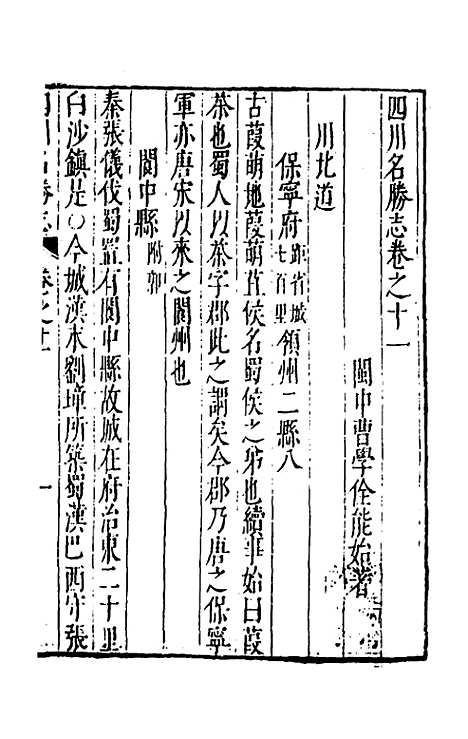 四川名勝志卷之十一
閩中曹學佺能始著
川北道
保寧府距省城七百里領州二縣八
古葭萌地葭萌苴侯名蜀侯之弟也續事始曰葭
茶也蜀人以茶字郡此之謂矣今郡乃唐之保寧
軍亦唐宋以來之閬州也
閬中縣附郭
秦張儀伐蜀置有閬中縣故城在府治東二十里
白沙鎮是○今城漢末劉璋所築蜀漢巴西守張
四川名勝志 卷之十一 一